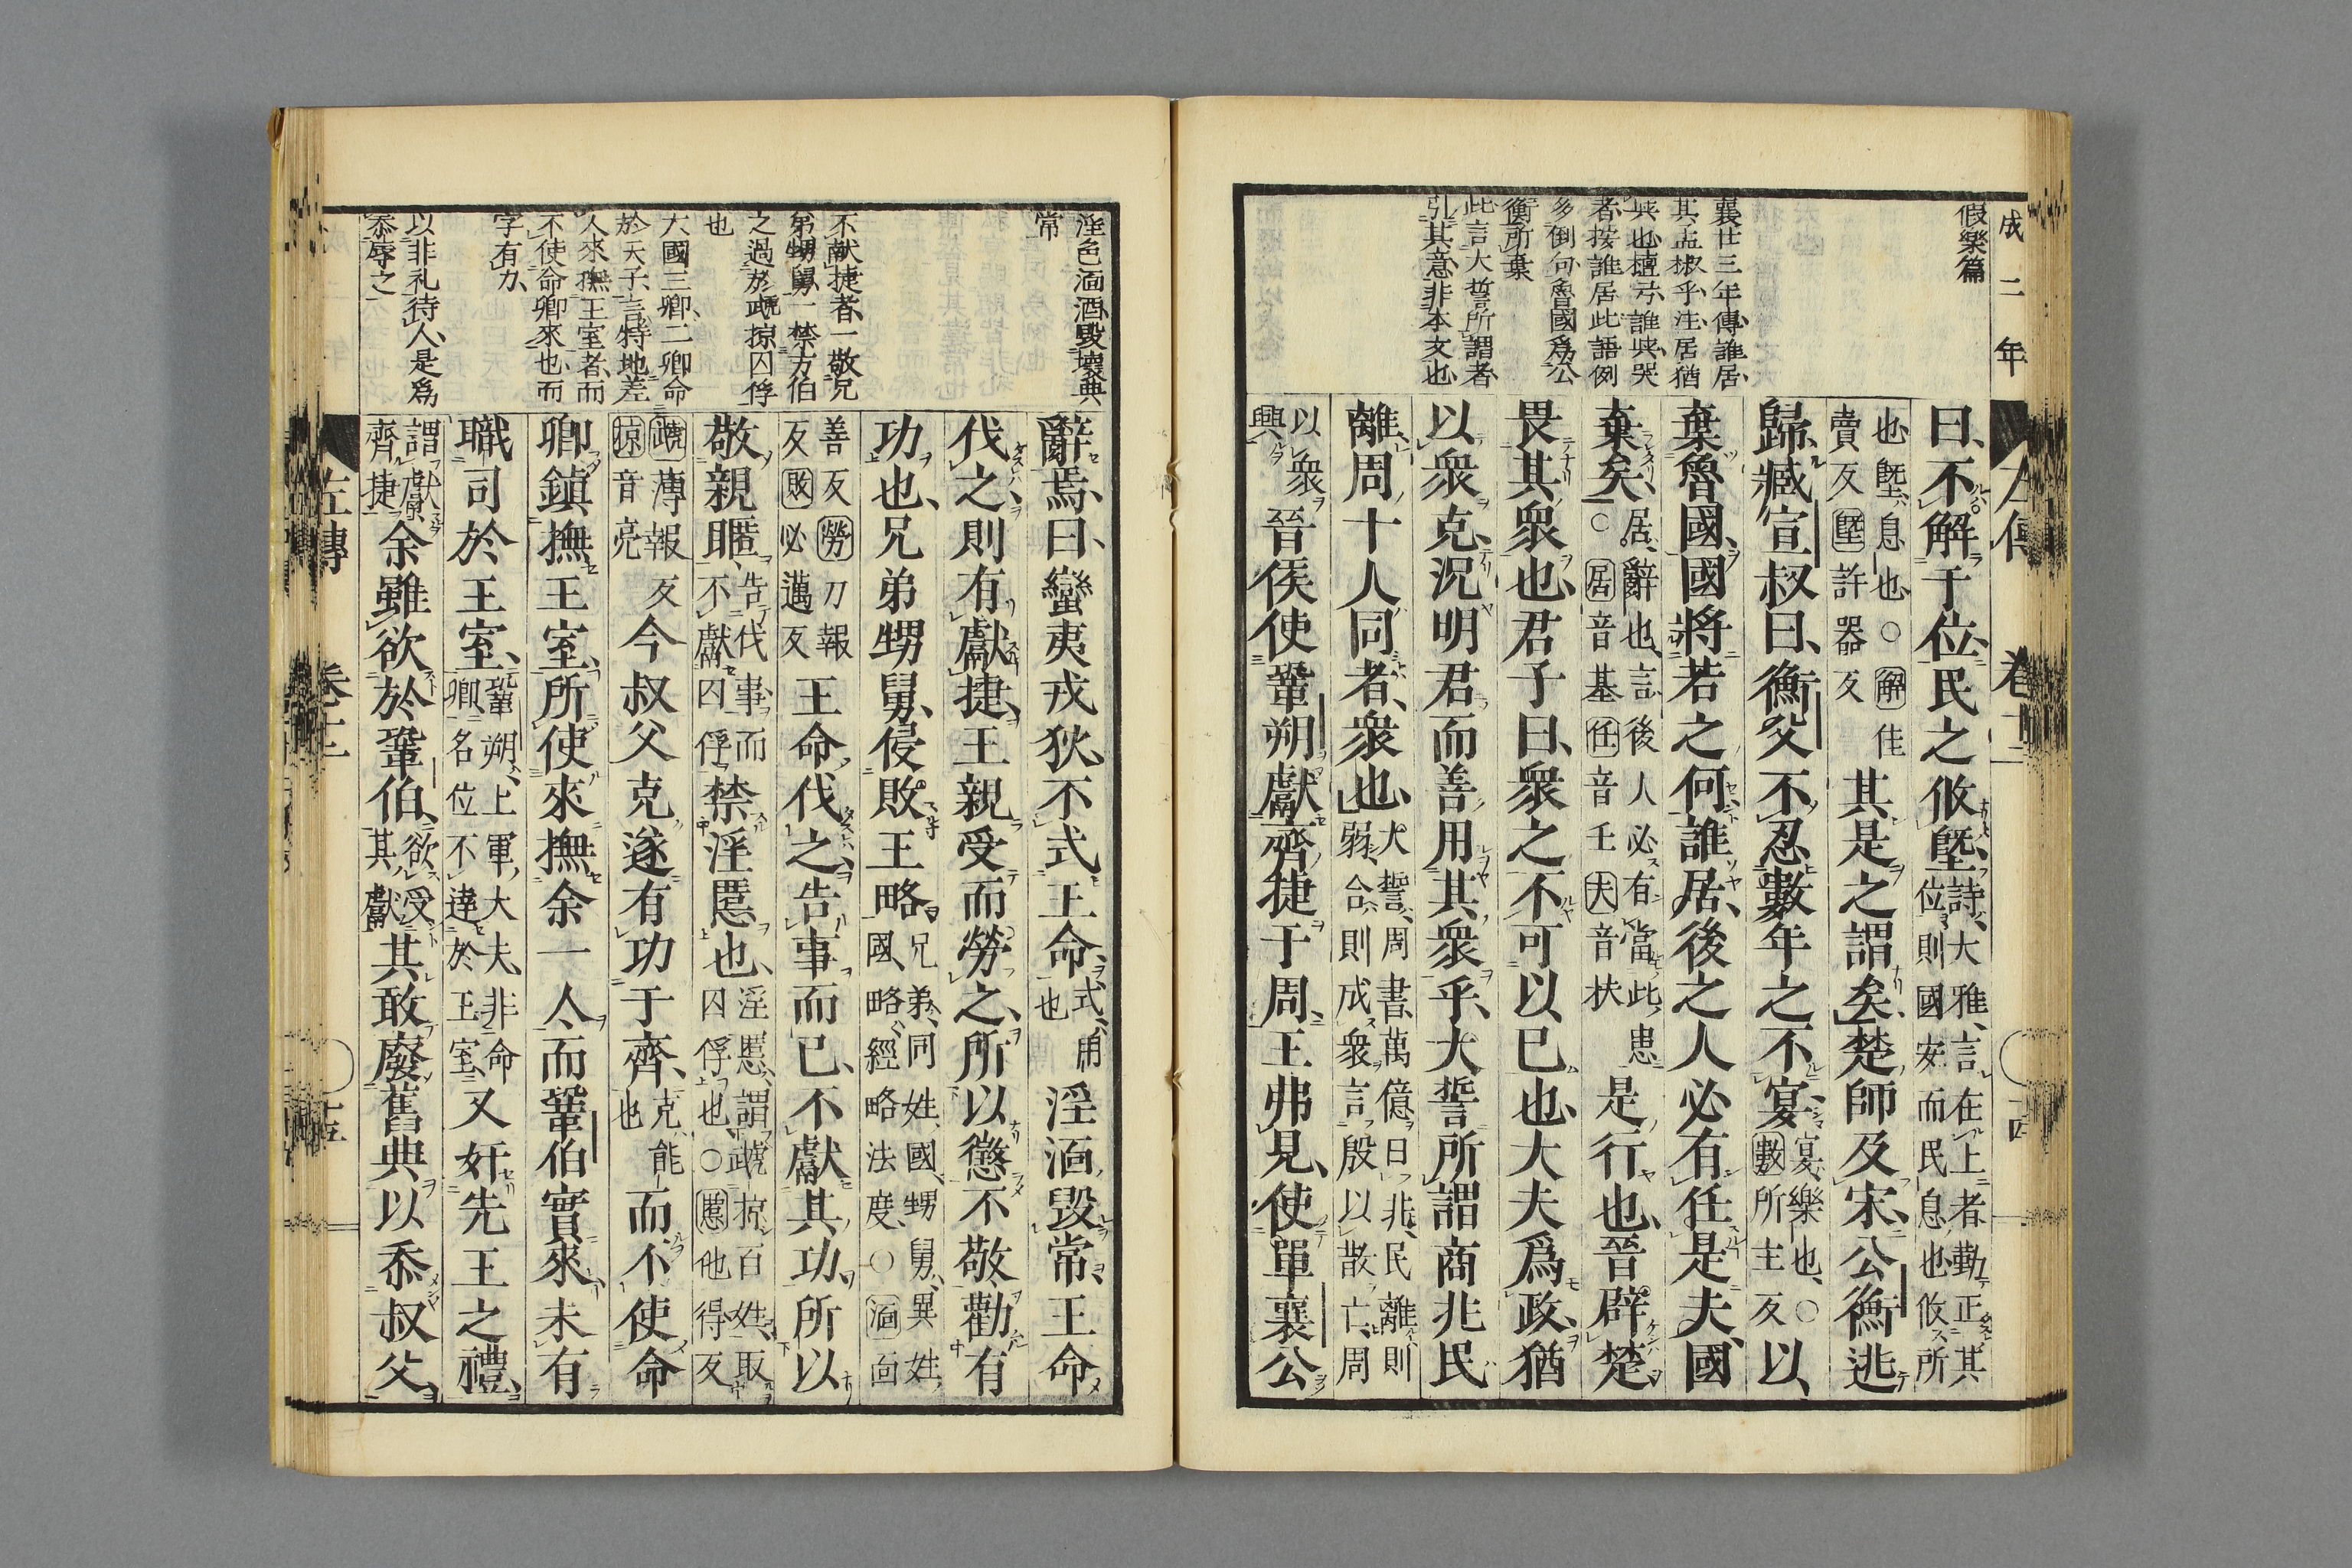 成二年
假樂篇
襄廿三年傳誰居
其孟椒乎注居猶
與也檀弓誰與哭
者按誰居此語例
多倒句魯國爲公
衡所棄
此言大誓所謂者
引其意非本文也
曰不解于位民之攸墍
詩大雅言在上者勤正其
位則國安而民息也攸所
也墍息也○解佳
賣反墍許器反
其是之謂矣楚師及宋公衡逃
歸臧宣叔曰衡父不忍數年之不宴
宴樂也○
數所主反
以
棄魯國國將若之何誰居後之人必有任是夫國
棄矣
居辭也言後人必有當此患
○居音基任音壬夫音扶
是行也晉辟楚
畏其衆也君子曰衆之不可以已也大夫爲政猶
以衆克況明君而善用其衆乎大誓所謂商兆民
離周十人同者衆也
大誓周書萬億曰兆民離則
弱合則成衆言殷以散亡周
以衆
興
晉侯使鞏朔獻齊捷于周王弗見使單襄公
淫色湎酒毀壞典
常
不献捷者一敬兄
弟甥舅一禁方伯
之過於虣掠囚俘
也
大國三卿二卿命
於天子言特地差
人來撫王室者而
不使命卿來也而
字有力
以非礼待人是爲
忝辱之
辭焉曰蠻夷戎狄不式王命
式用
也
淫湎毀常王命
伐之則有獻捷王親受而勞之所以懲不敬勸有
功也兄弟甥舅侵敗王略
兄弟同姓國甥舅異姓
國略經略法度○湎面
善反勞力報
反敗必邁反
王命伐之告事而已不獻其功所以
敬親暱
告伐事而
不獻囚俘
禁淫慝也
淫慝謂虣掠百姓取
囚俘也○慝他得反
虣薄報反
掠音亮
今叔父克遂有功于齊
克能
也
而不使命
卿鎮撫王室所使來撫余一人而鞏伯實來未有
職司於王室
鞏朔上軍大夫非命
卿名位不達於王室
又奸先王之禮
謂獻
齊捷
余雖欲於鞏伯
欲受
其獻
其敢廢舊典以忝叔父
左傳
卷十二
十五